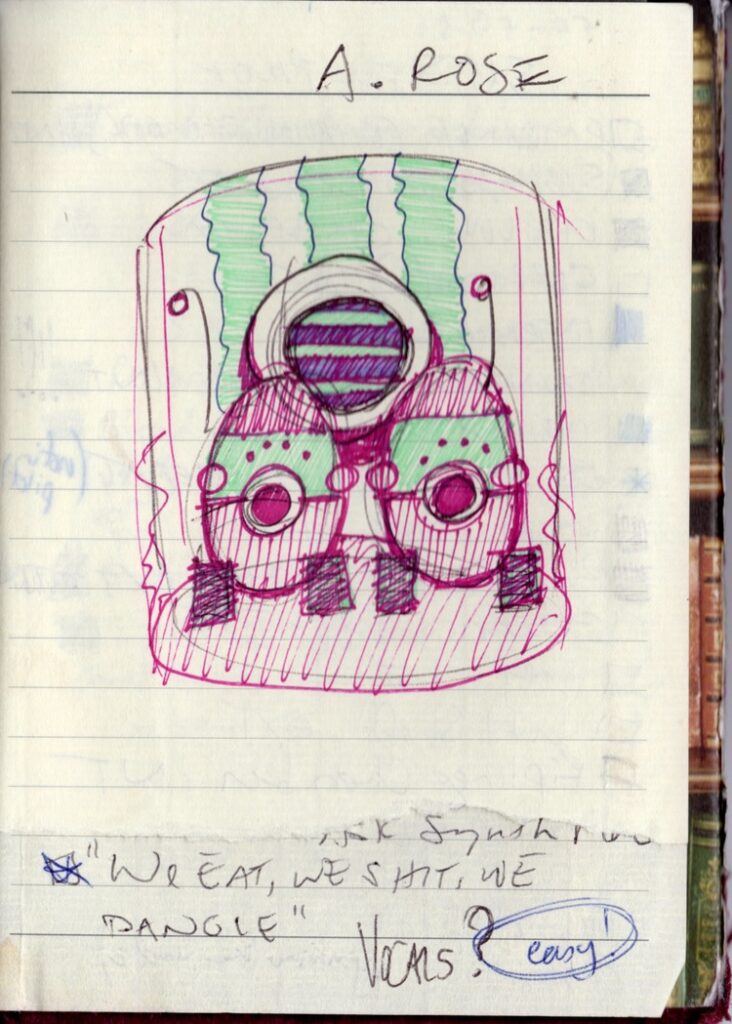 A. ROSE
"We EAT, WE SHIT, WE
DANGLE"
VOCALS?
easy!